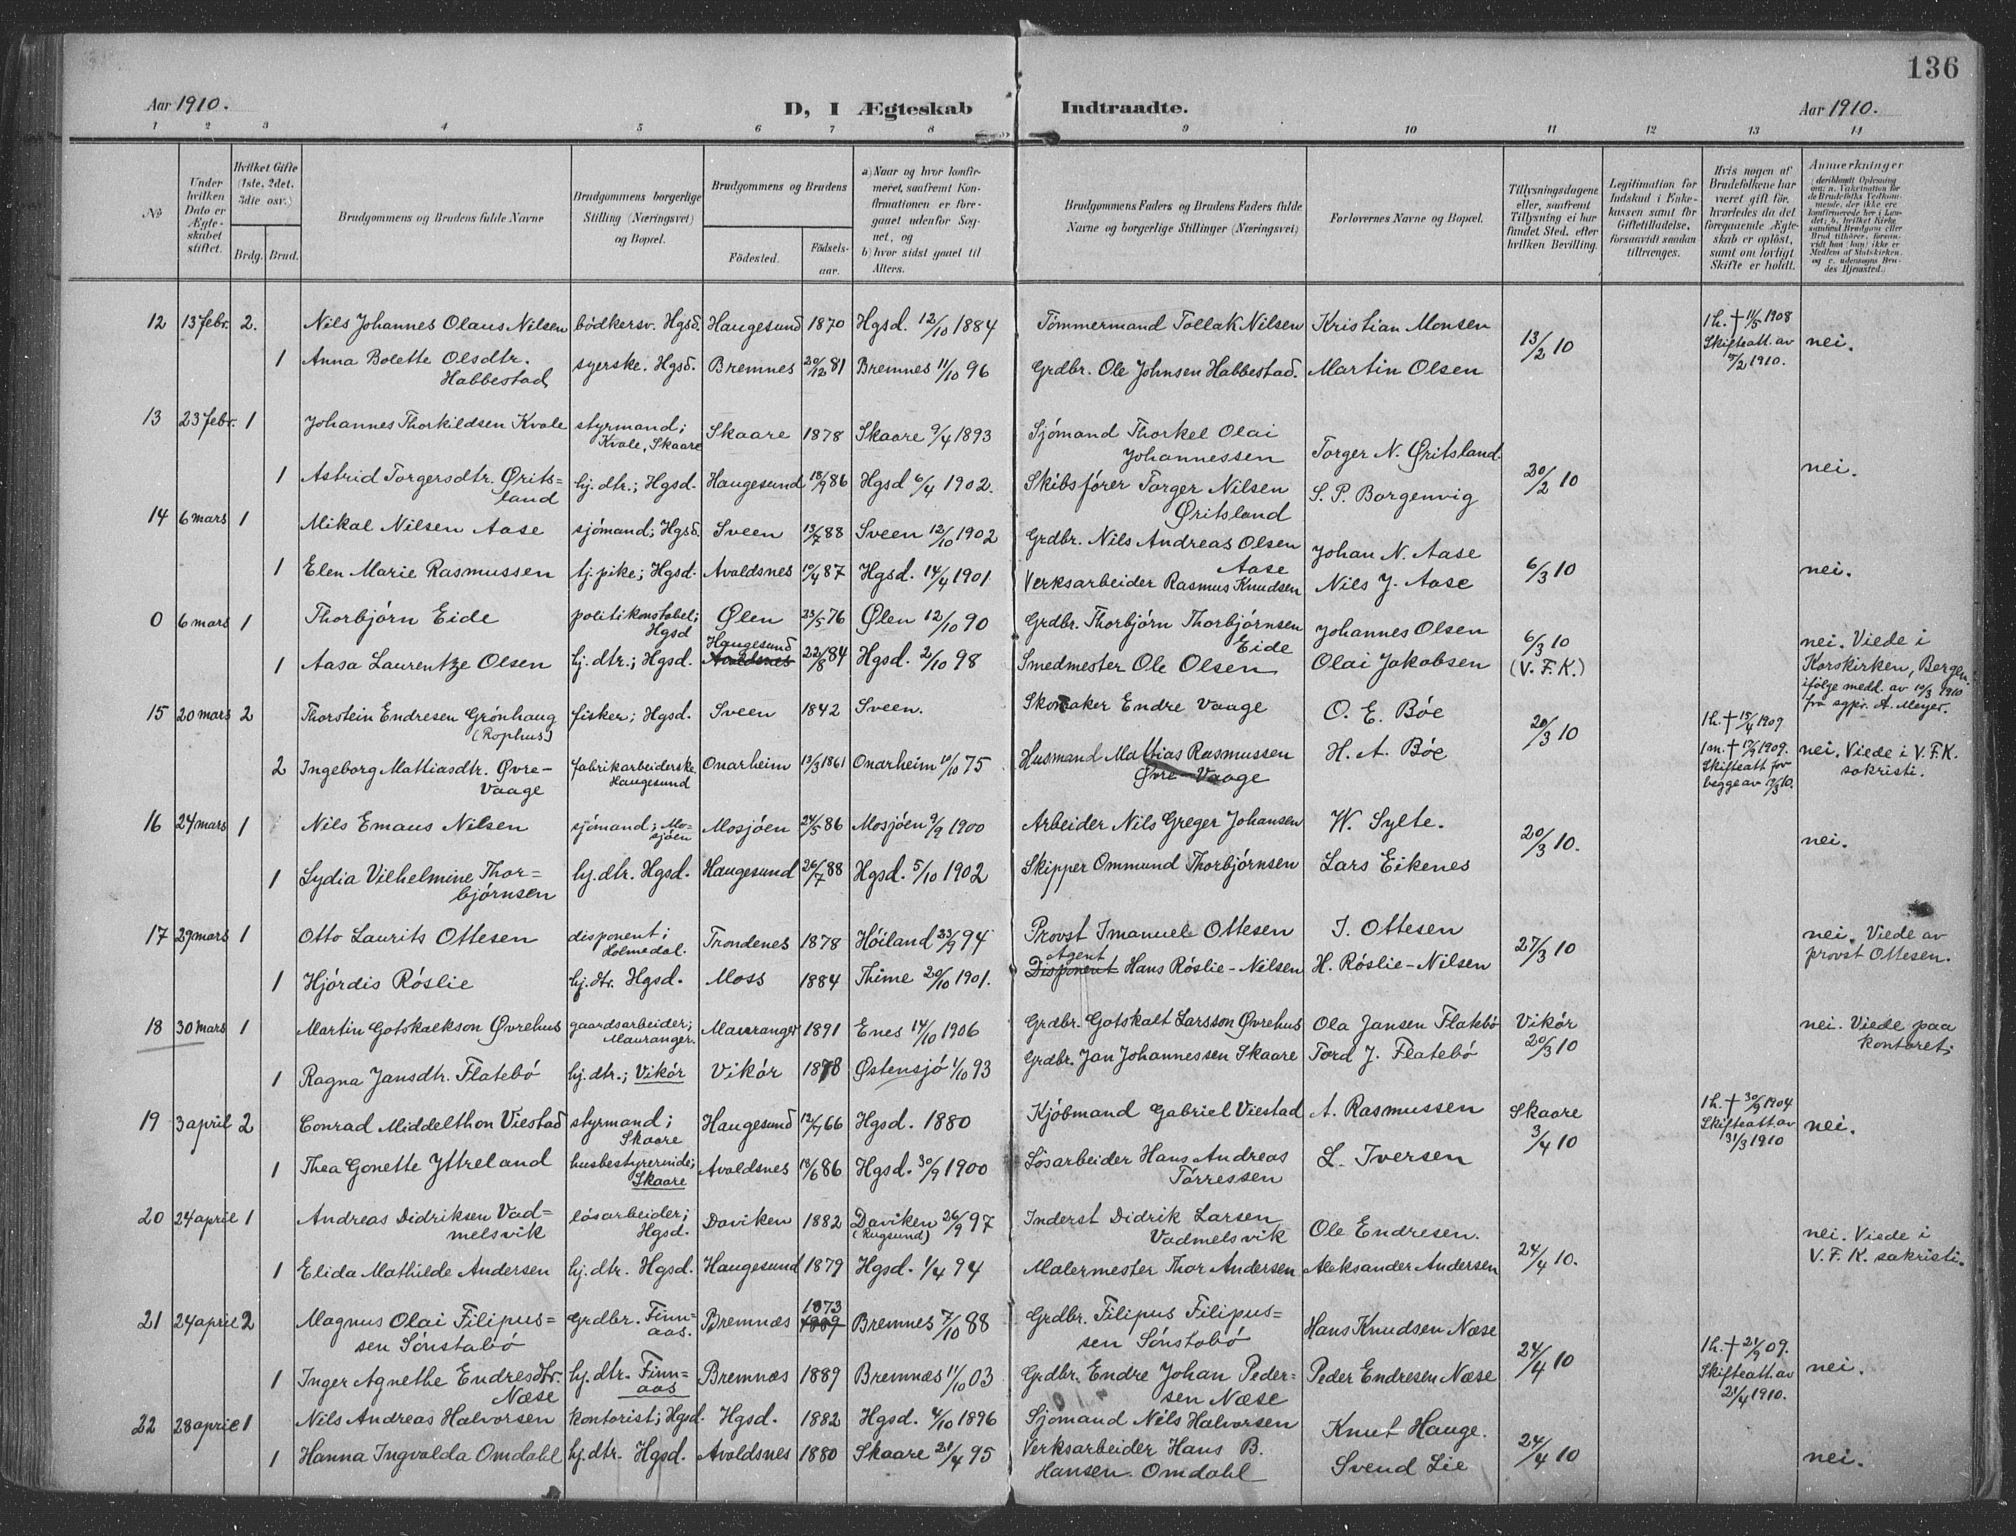 136
Aar 1910. D, I Ægteskab Indtraadte. Aar 1910.
1 2 3 4 5 6 7 8 9 10 11 12 13 14
№
Under hvilken Dato er Ægteskabet stiftet.
Hvilket Gifte (1ste, 2det, 3die osv.)
Brdg. Brud.
Brudgommens og Brudens fulde Navne
Brudgommens borgerlige Stilling (Næringsvei) og Bopæl.
Brudgommens og Brudens
Fødested. Fødselsaar.
a) Naar og hvor konfirmeret, saafremt Konfirmationen er foregaaet udenfor Sognet, og
b) hvor sidst gaaet til Alters.
Brudgommens Faders og Brudens Faders fulde Navne og borgerlige Stillinger (Næringsvei)
Forlovernes Navne og Bopæl.
Tillysningsdagene eller, saafremt Tillysning ei har fundet Sted, efter hvilken Bevilling.
Legitimation for Indskud i Enkekassen samt for Giftetilladelse, forsaavidt saadan tiltrænges.
Hvis nogen af Brudefolkene har været gift før, hvorledes da det foregaaende Ægteskab er opløst, samt om lovligt Skifte er holdt.
Anmerkninger
12 13 febr. 2. Nils Johannes Olaus Nilsen bødkersv. Hgsd. Haugesund 1870 Hgsd. 12/10 1884 Tømmermand Tollak Nilsen Kristian Monsen 13/2 10 1 h. † 11/5 1908 Skifteatt. av 5/2 1910. nei.
1 Anna Bolette Olsdtr. Habbestad syerske. Hgsd. Bremnes 20/12 81 Bremnes 11/10 96 Grdbr. Ole Johnsen Habbestad. Martin Olsen
13 23 febr. 1 Johannes Thorkildsen Kvale styrmand; Kvale, Skaare Skaare 1878 Skaare 9/4 1893 Sjømand Thorkel Olai Johannessen Torger N. Øritsland 20/2 10 nei.
1 Astrid Torgersdtr. Øritsland hj. dtr.; Hgsd. Haugesund 18/9 86 Hgsd 6/4 1902. Skibsfører Torger Nilsen Øritsland S. P. Borgenvig
14 6 mars 1 Mikal Nilsen Aase sjømand; Hgsd. Sveen 13/7 88 Sveen 12/10 1902 Grdbr. Nils Andreas Olsen Aase Johan N. Aase 6/3 10 nei.
1 Elen Marie Rasmussen tj. pike; Hgsd. Avaldsnes 10/4 87 Hgsd. 14/4 1901. Verksarbeider Rasmus Knudsen Nils J. Aase
0 6 mars 1 Thorbjørn Eide politikonstabel; Hgsd Ølen 23/5 76 Ølen 12/10 90 Grdbr. Thorbjørn Thorbjørnsen Eide Johannes Olsen 6/3 10 (V. F. K.) nei. Viede i Korskirken, Bergen. ifølge medd. av 10/3 1910 fra sgpr. A. Meyer.
1 Aasa Laurentze Olsen hj. dtr.; Hgsd. Haugesund Avaldsnes 22/8 84 Hgsd. 2/10 98 Smedmester Ole Olsen Olai Jakobsen
15 20 mars 2 Thorstein Endresen Grønhaug (Rophus) fisker; Hgsd. Sveen 1842 Sveen. Skomaker Endre Vaage O. E. Bøe 20/3 10 1 h. † 15/4 1909.
2 Ingeborg Mattiasdtr. Øvre-Vaage fabrikarbeiderske Haugesund Onarheim 13/3 1861 Onarheim 10/10 75 Husmand Mattias Rasmussen Øvre-Vaage H. A. Bøe 1 m. † 17/9 1909. Skifteatt for begge av 17/3 10. nei. Viede i V. F. K. sakristi.
16 24 mars 1 Nils Emaus Nilsen sjømand; Mosjøen Mosjøen 24/5 86 Mosjøen 9/9 1900 Arbeider Nils Greger Johansen W. Sylte. 20/3 10. nei.
1 Lydia Vilhelmine Thorbjørnsen hj. dtr. Hgsd. Haugesund 26/7 88 Hgsd. 5/10 1902 Skipper Ommund Thorbjørnsen Lars Eikenes
17 29 mars 1 Otto Laurits Ottesen disponent; Holmedal. Trondenes 1878 Høiland 23/9 94 Provst Imanuel Ottesen I. Ottesen 27/3 10 nei. Viede av provst Ottesen.
1 Hjørdis Røslie hj. dtr. Hgsd. Moss 1884 Thime 20/10 1901. Agent Disponent Hans Røslie-Nilsen H. Røslie-Nilsen
18 30 mars 1 Martin Gotskalkson Øvrehus gaardsarbeider; Mauranger. Mauranger 1891 Enes 14/10 1906 Grdbr. Gotskalt Larsson Øvrehus Ola Jansen Flatebø Vikør 20/3 10 nei. Viede paa kontoret.
1 Ragna Jansdtr. Flatebø hj. dtr.; Vikør Vikør 1878 Østensjø 1/10 93 Grdbr. Jan Johannessen Skaare Tord J. Flatebø
19 3 april 2 Conrad Middelthon Viestad styrmand; Skaare Haugesund 12/7 66 Hgsd. 1880 Kjøbmand Gabriel Viestad A. Rasmussen Skaare 3/4 10 1 h. † 30/9 1904 Skifteatt av 31/3 1910 nei.
1 Thea Gonette Yttreland husbestyrerinde; Skaare Avaldsnes 18/6 86 Hgsd. 30/9 1900 Løsarbeider Hans Andreas Tørressen L. Iversen
20 24 april 1 Andreas Didriksen Vadmelsvik løsarbeider; Hgsd. Daviken 1882 Daviken (Rugsund) 26/9 97 Inderst Didrik Larsen Vadmelsvik Ole Endresen. 24/4 10. nei. Viede i V. F. K. sakristi.
1 Elida Mathilde Andersen hj. dtr. Hgsd. Haugesund 1879 Hgsd. 1/4 94 Malermester Thor Andersen Aleksander Andersen
21 24 april 2 Magnus Olai Filipussen Sønstabø Grdbr. Finnaas. Bremnæs 1873 1889 Bremnes 7/10 88 Grdbr. Filipus Filipussen Sønstabø Hans Knudsen Næse 24/4 10 1 h. † 21/9 09. Skifteatt av 21/4 1910. nei.
1 Inger Agnethe Endresdtr. Næse hj. dtr. Finnaas Bremnæs 1889 Bremnæs 11/10 03 Grdbr. Endre Johan Pedersen Næse Peder Endresen Næse
22 28 april 1 Nils Andreas Halvorsen kontorist; Hgsd. Hgsd. 1882 Hgsd. 4/10 1896 Sjømand Nils Halvorsen Knut Hauge. 24/4 10 nei.
1 Hanna Ingvalda Omdahl hj. dtr. Hgsd. Avaldsnes 1880 Skaare 21/4 95 Verksarbeider Hans B. Hansen Omdahl Svend Lie